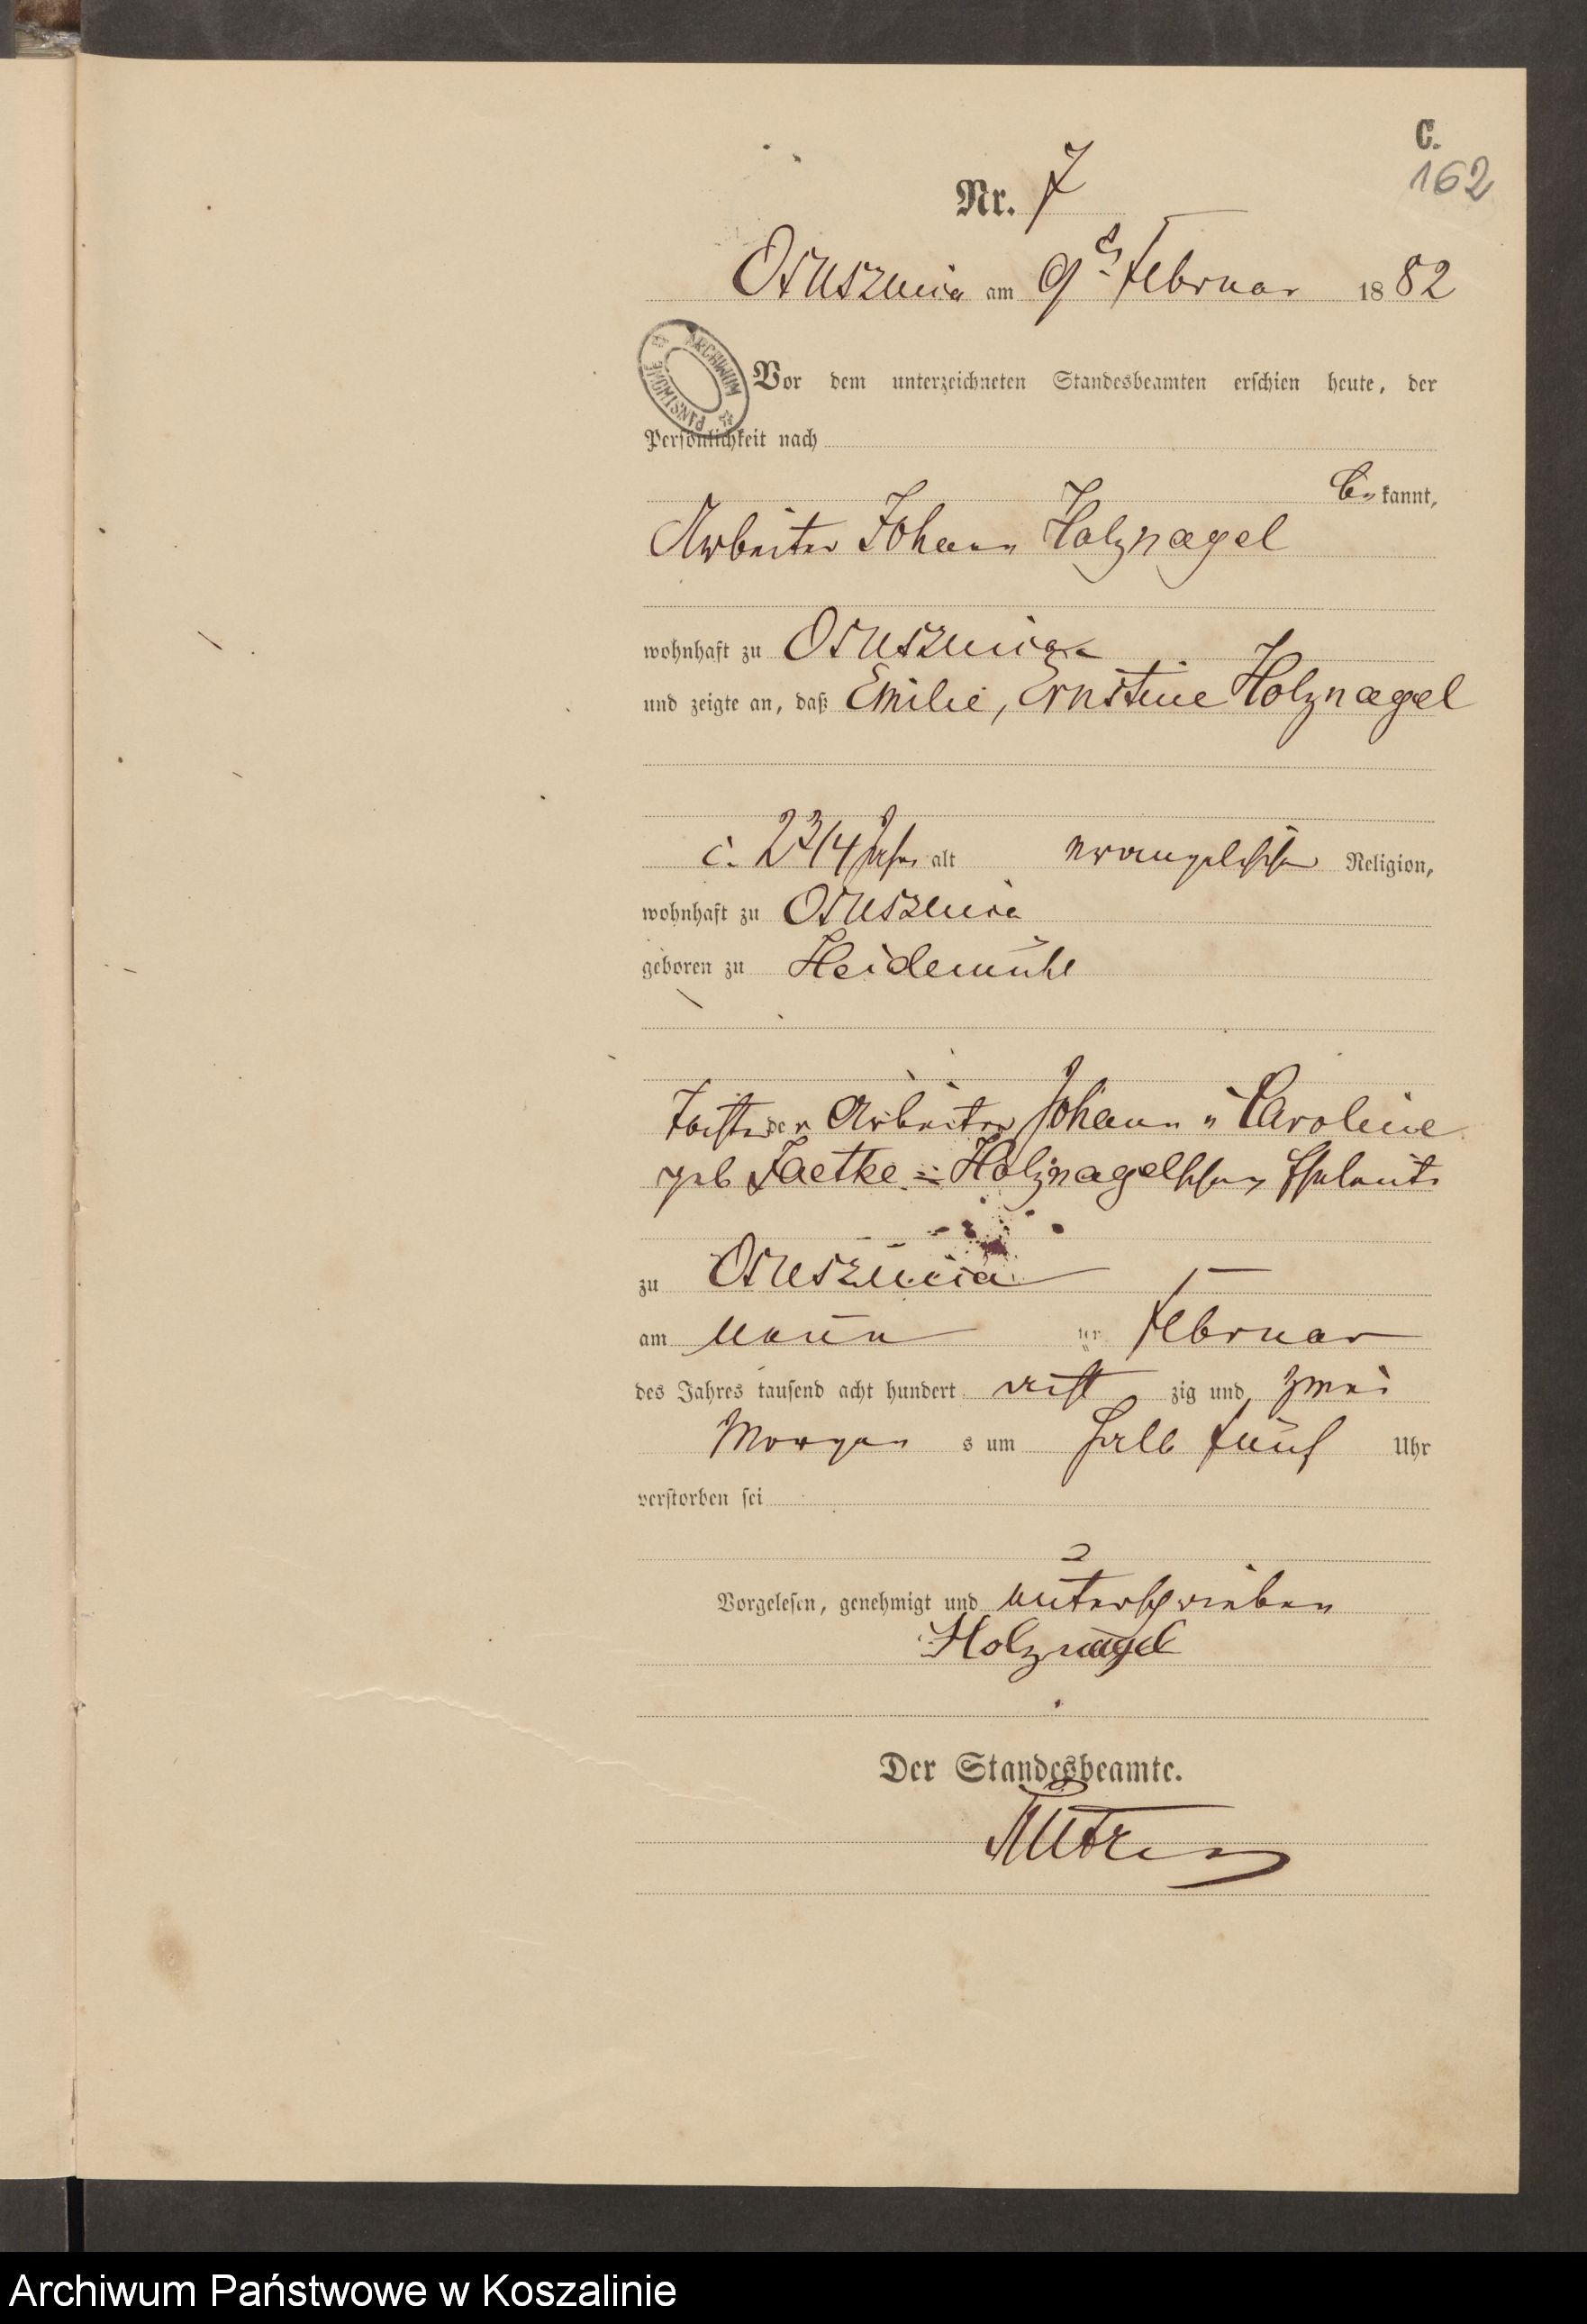 C.
162
Nr. 7
Osuszniza am 9ten Februar 1882
ARCHIWUM PAŃSTWOWE
Vor dem unterzeichneten Standesbeamten erschien heute, der
Persönlichkeit nach
be kannt,
Arbeiter Johann Holznagel
wohnhaft zu Osuszniza
und zeigte an, daß Emilie, Ernstine Holznagel
c. 2 3/4 Jahr alt evangelischer Religion,
wohnhaft zu Osuszniza
geboren zu Heidemühl
Tochter der Arbeiter Johann u Caroline
geb Jaetke = Holznagelschen Eheleute
zu Osuszniza
am neun ur Februar
des Jahres tausend acht hundert acht zig und zwei
Morgen s um halb fünf Uhr
verstorben sei
Vorgelesen, genehmigt und unterschrieben
Holznagel
Der Standesbeamte.
Archiwum Państwowe w Koszalinie